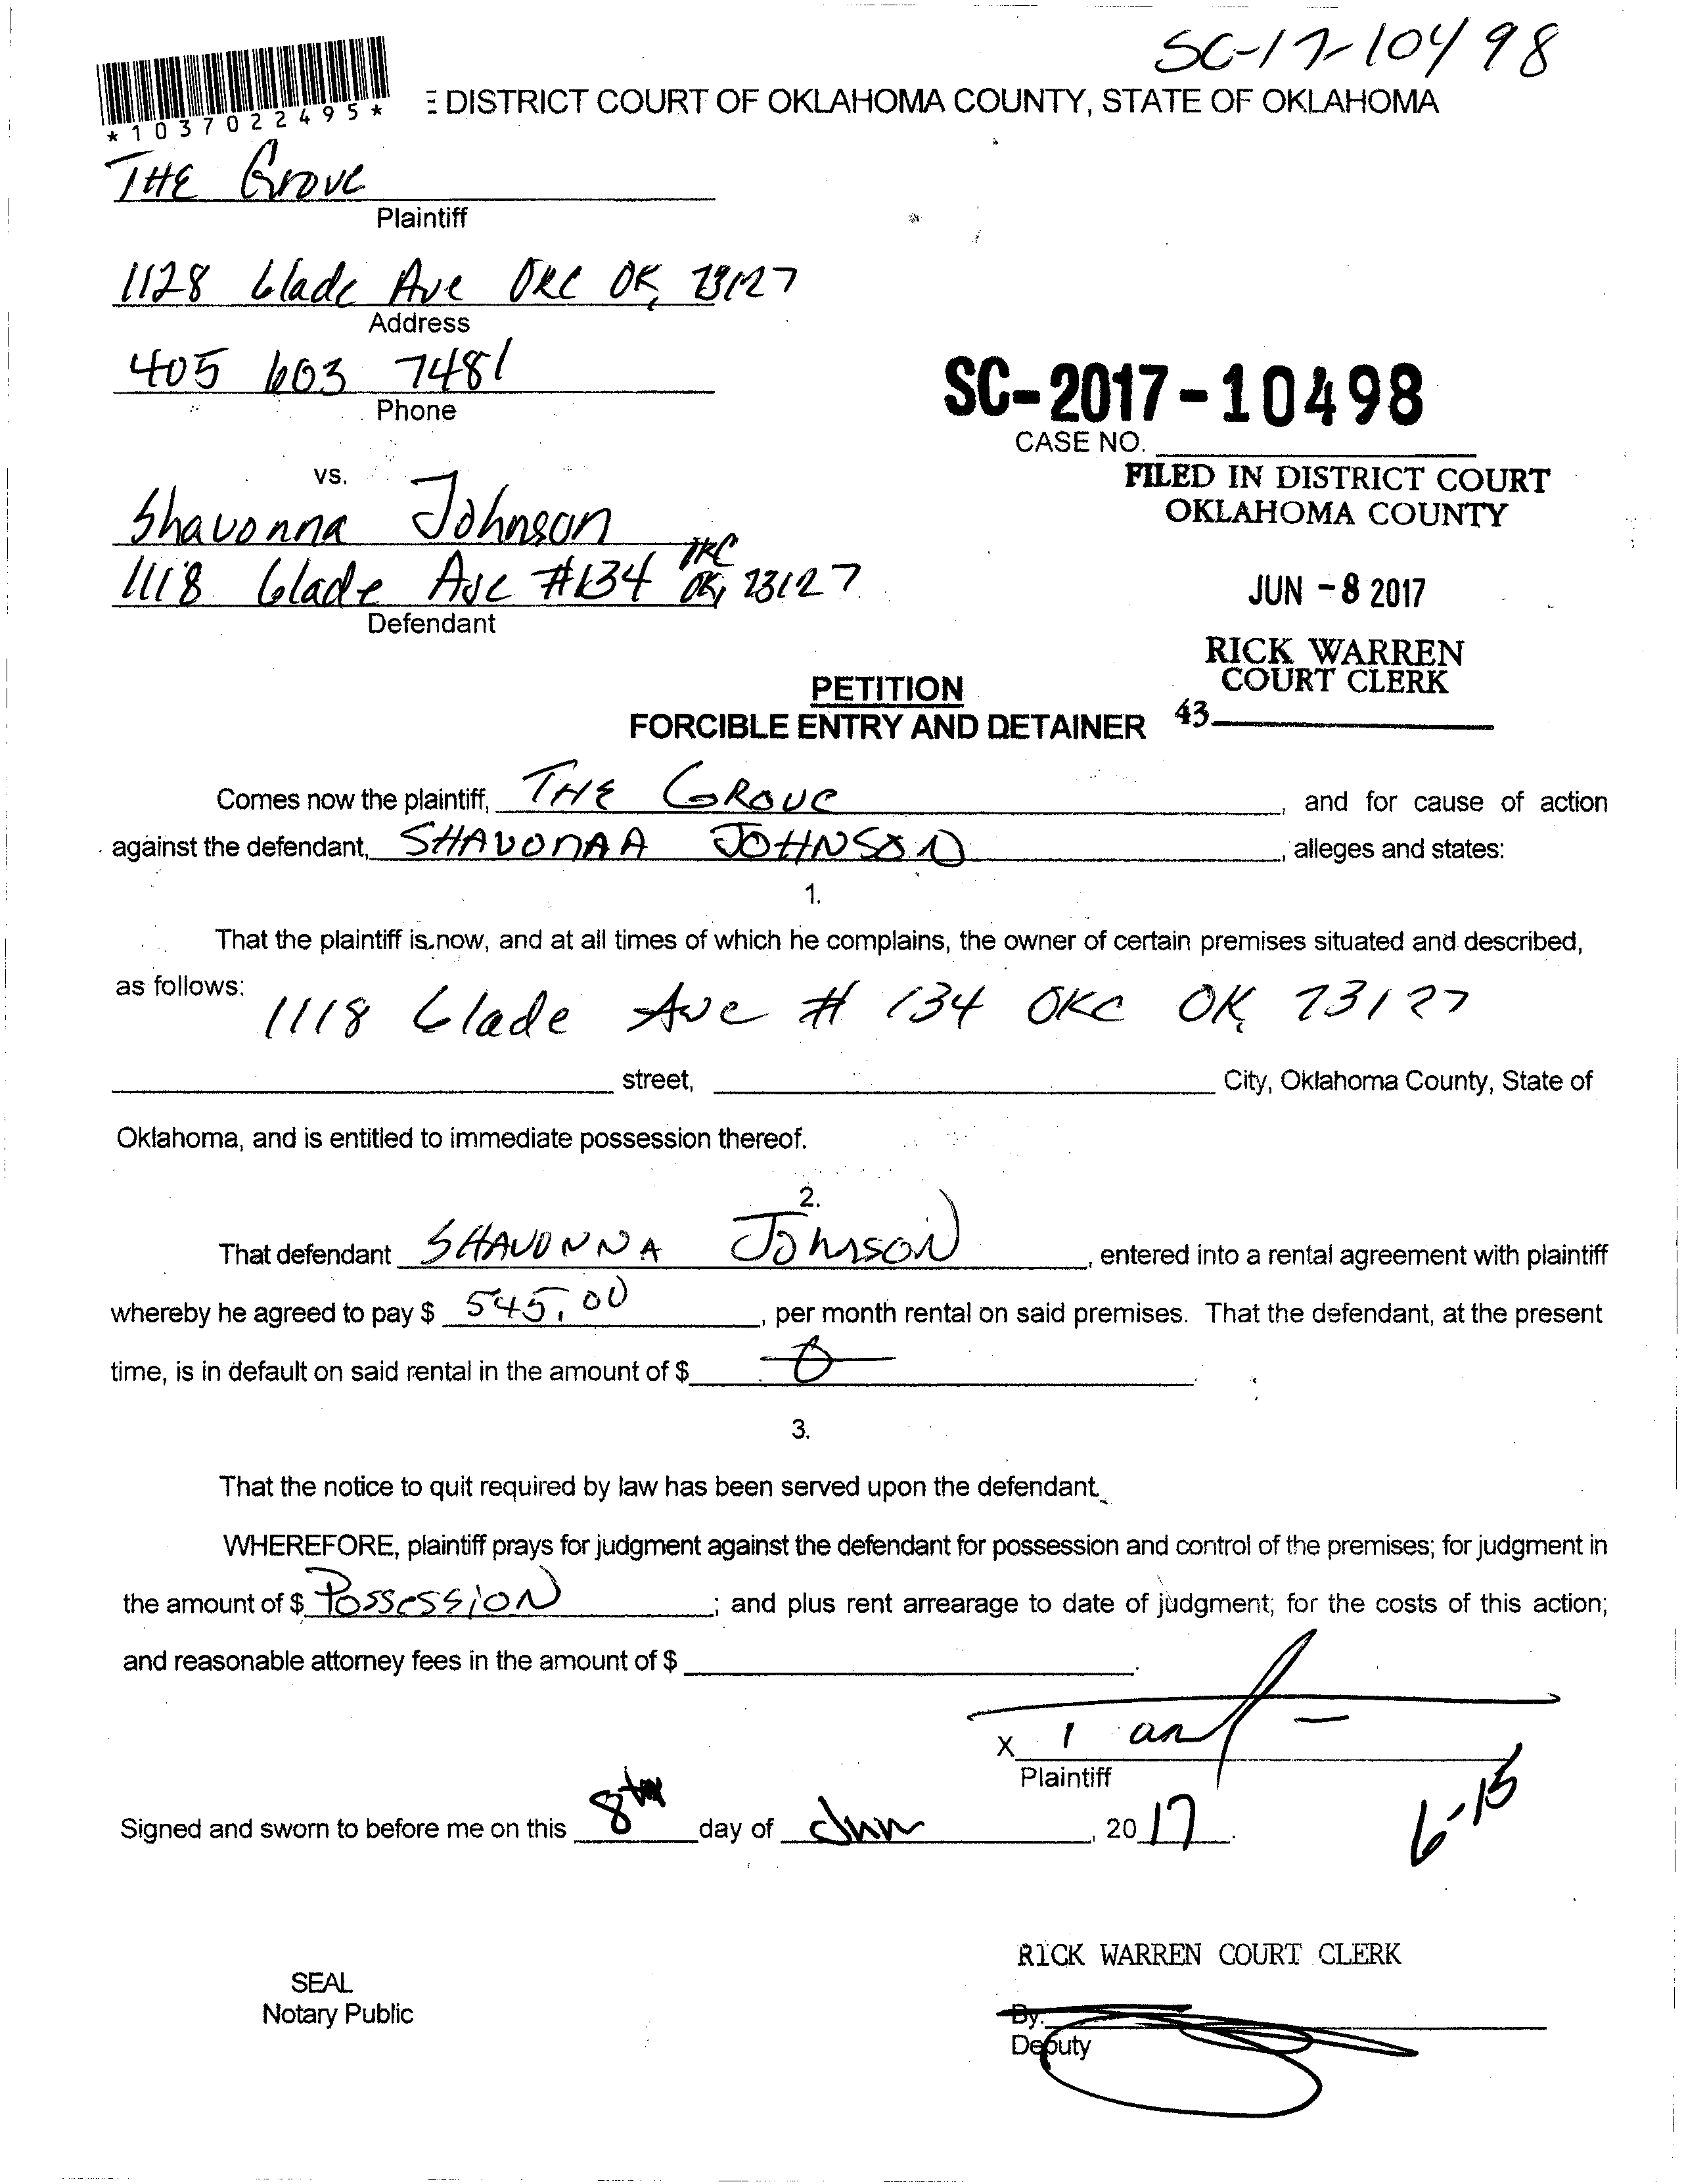 SC-17-10498
*1037022495*
E DISTRICT COURT OF OKLAHOMA COUNTY, STATE OF OKLAHOMA
THE Grove
Plaintiff
1128 Glade Ave OKC OK, 73127
Address
405 603 7481
Phone
SC-2017-10498
CASE NO.
FILED IN DISTRICT COURT
OKLAHOMA COUNTY
vs.
Shavonna Johnson
1118 Glade Ave #134 OKC OK, 73127
Defendant
JUN -8 2017
RICK WARREN
COURT CLERK
43
PETITION
FORCIBLE ENTRY AND DETAINER
Comes now the plaintiff, THE GROVE, and for cause of action
against the defendant, SHAVONAA JOHNSON, alleges and states:
1.
That the plaintiff is now, and at all times of which he complains, the owner of certain premises situated and described,
as follows:
1118 Glade Ave # 134 OKC OK, 73127
street, City, Oklahoma County, State of
Oklahoma, and is entitled to immediate possession thereof.
2.
That defendant SHAVONNA JOhnSON, entered into a rental agreement with plaintiff
whereby he agreed to pay $ 545.00, per month rental on said premises. That the defendant, at the present
time, is in default on said rental in the amount of $ 0.
3.
That the notice to quit required by law has been served upon the defendant.
WHEREFORE, plaintiff prays for judgment against the defendant for possession and control of the premises; for judgment in
the amount of $ POSSESSION; and plus rent arrearage to date of judgment; for the costs of this action;
and reasonable attorney fees in the amount of $.
X
Plaintiff
6-15
Signed and sworn to before me on this 8th day of Jun, 2017.
RICK WARREN COURT CLERK
SEAL
Notary Public
By:
Deputy